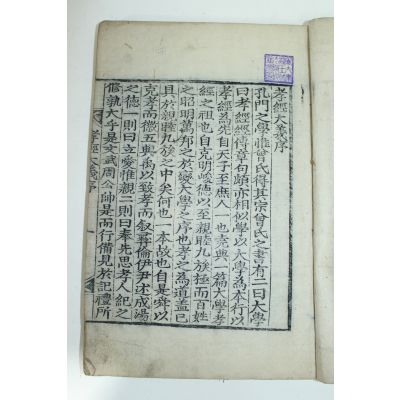 孝經大義序
孔門之學惟曾氏得其宗曾氏之書有二曰大學
曰孝經經傳章句頗亦相似學以大學為本行以
孝經為先自天子至於庶人一也堯典一篇大學孝
經之祖也自克明峻德以至親睦九族極而百姓
之昭明萬邦之於變大學之序也孝之為道盖已
具於親睦九族之中矣何也一本故也自是舜以
克孝而徽五典禹以致孝而叙彛倫伊尹述成湯
之德一則曰立愛惟親二則曰奉先思孝人紀之
修孰大乎是文武周公帥是而行備見於記禮所
孝經大義序